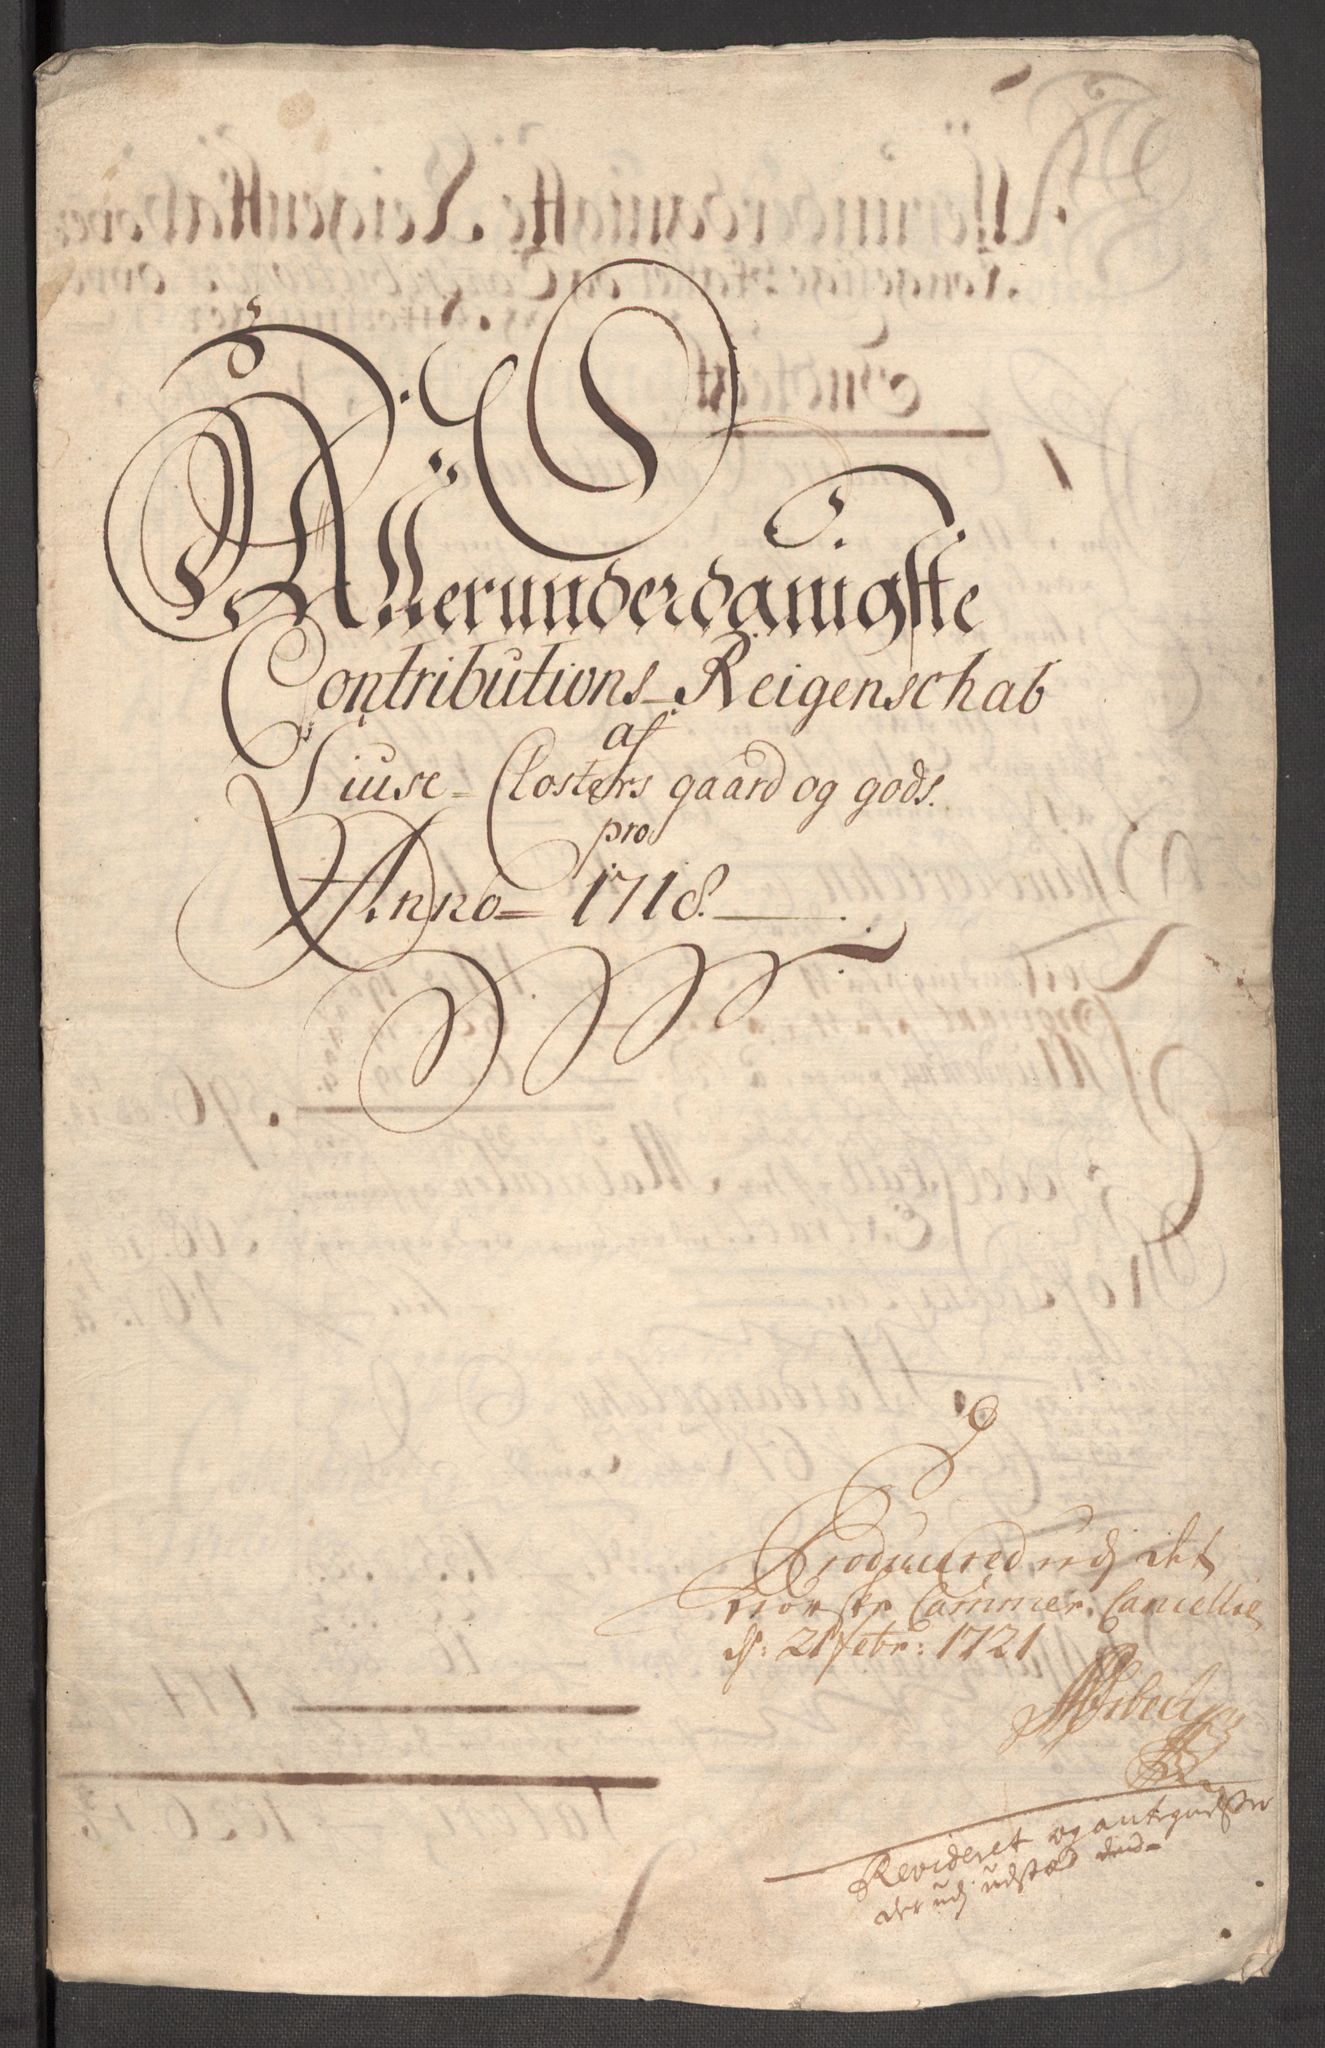 Allerunderdanigste
Contributions-Reigenschab
af
Liuse-Closters gaard og gods.
pro
Anno = 1718.
Producered udj det
Norske Cammer Cancellie
d: 21 febr: 1721
Revideret og antegnelser
der udj udstæd